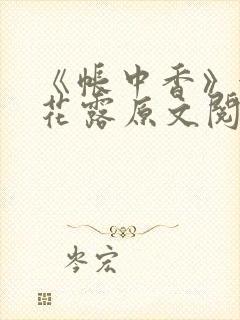 《帐中香》
花露原文阅
岑宏